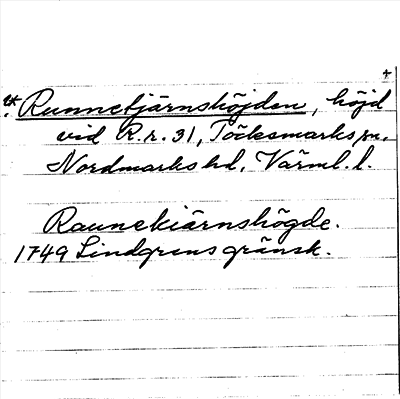 Runnetjärnshöjden, höjd
vid R.r. 31, Töcksmarks sn.
Nordmarks hd, Värml. l.
Raunekiärnshögde.
1749 Lindgrens gränsk.